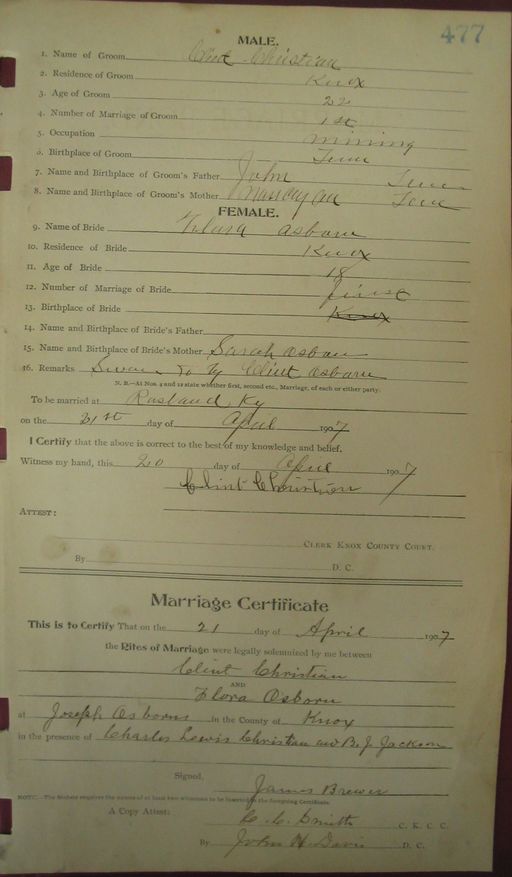 477
MALE.
1. Name of Groom Clint Christian
2. Residence of Groom Knox
3. Age of Groom 22
4. Number of Marriage of Groom 1st
5. Occupation mining
6. Birthplace of Groom Tenn
7. Name and Birthplace of Groom's Father John Tenn
8. Name and Birthplace of Groom's Mother Tenn
FEMALE.
9. Name of Bride Flora Osborn
10. Residence of Bride Knox
11. Age of Bride 18
12. Number of Marriage of Bride first
13. Birthplace of Bride Knox
14. Name and Birthplace of Bride's Father
15. Name and Birthplace of Bride's Mother Sarah Osborn
16. Remarks to by Clint Osborn
N. B.—At Nos. 4 and 12 state whether first, second etc., Marriage, of each or either party.
To be married at Ky
on the 21st day of April 1907
I Certify that the above is correct to the best of my knowledge and belief.
Witness my hand, this 20 day of April 1907
Clint Christian
ATTEST:
CLERK KNOX COUNTY COURT.
By D. C.
Marriage Certificate
This is to Certify That on the 21 day of April 1907
the Rites of Marriage were legally solemnized by me between
Clint Christian
AND
Flora Osborn
at Joseph Osborns in the County of Knox
in the presence of Charles Lewis Christian and B. J. Jackson
Signed, James Brewer
NOTE.—The Statute requires the names of at least two witnesses to be inserted in the foregoing Certificate.
A Copy Attest: C. C. Smith C. K. C. C.
By John H Davis D. C.